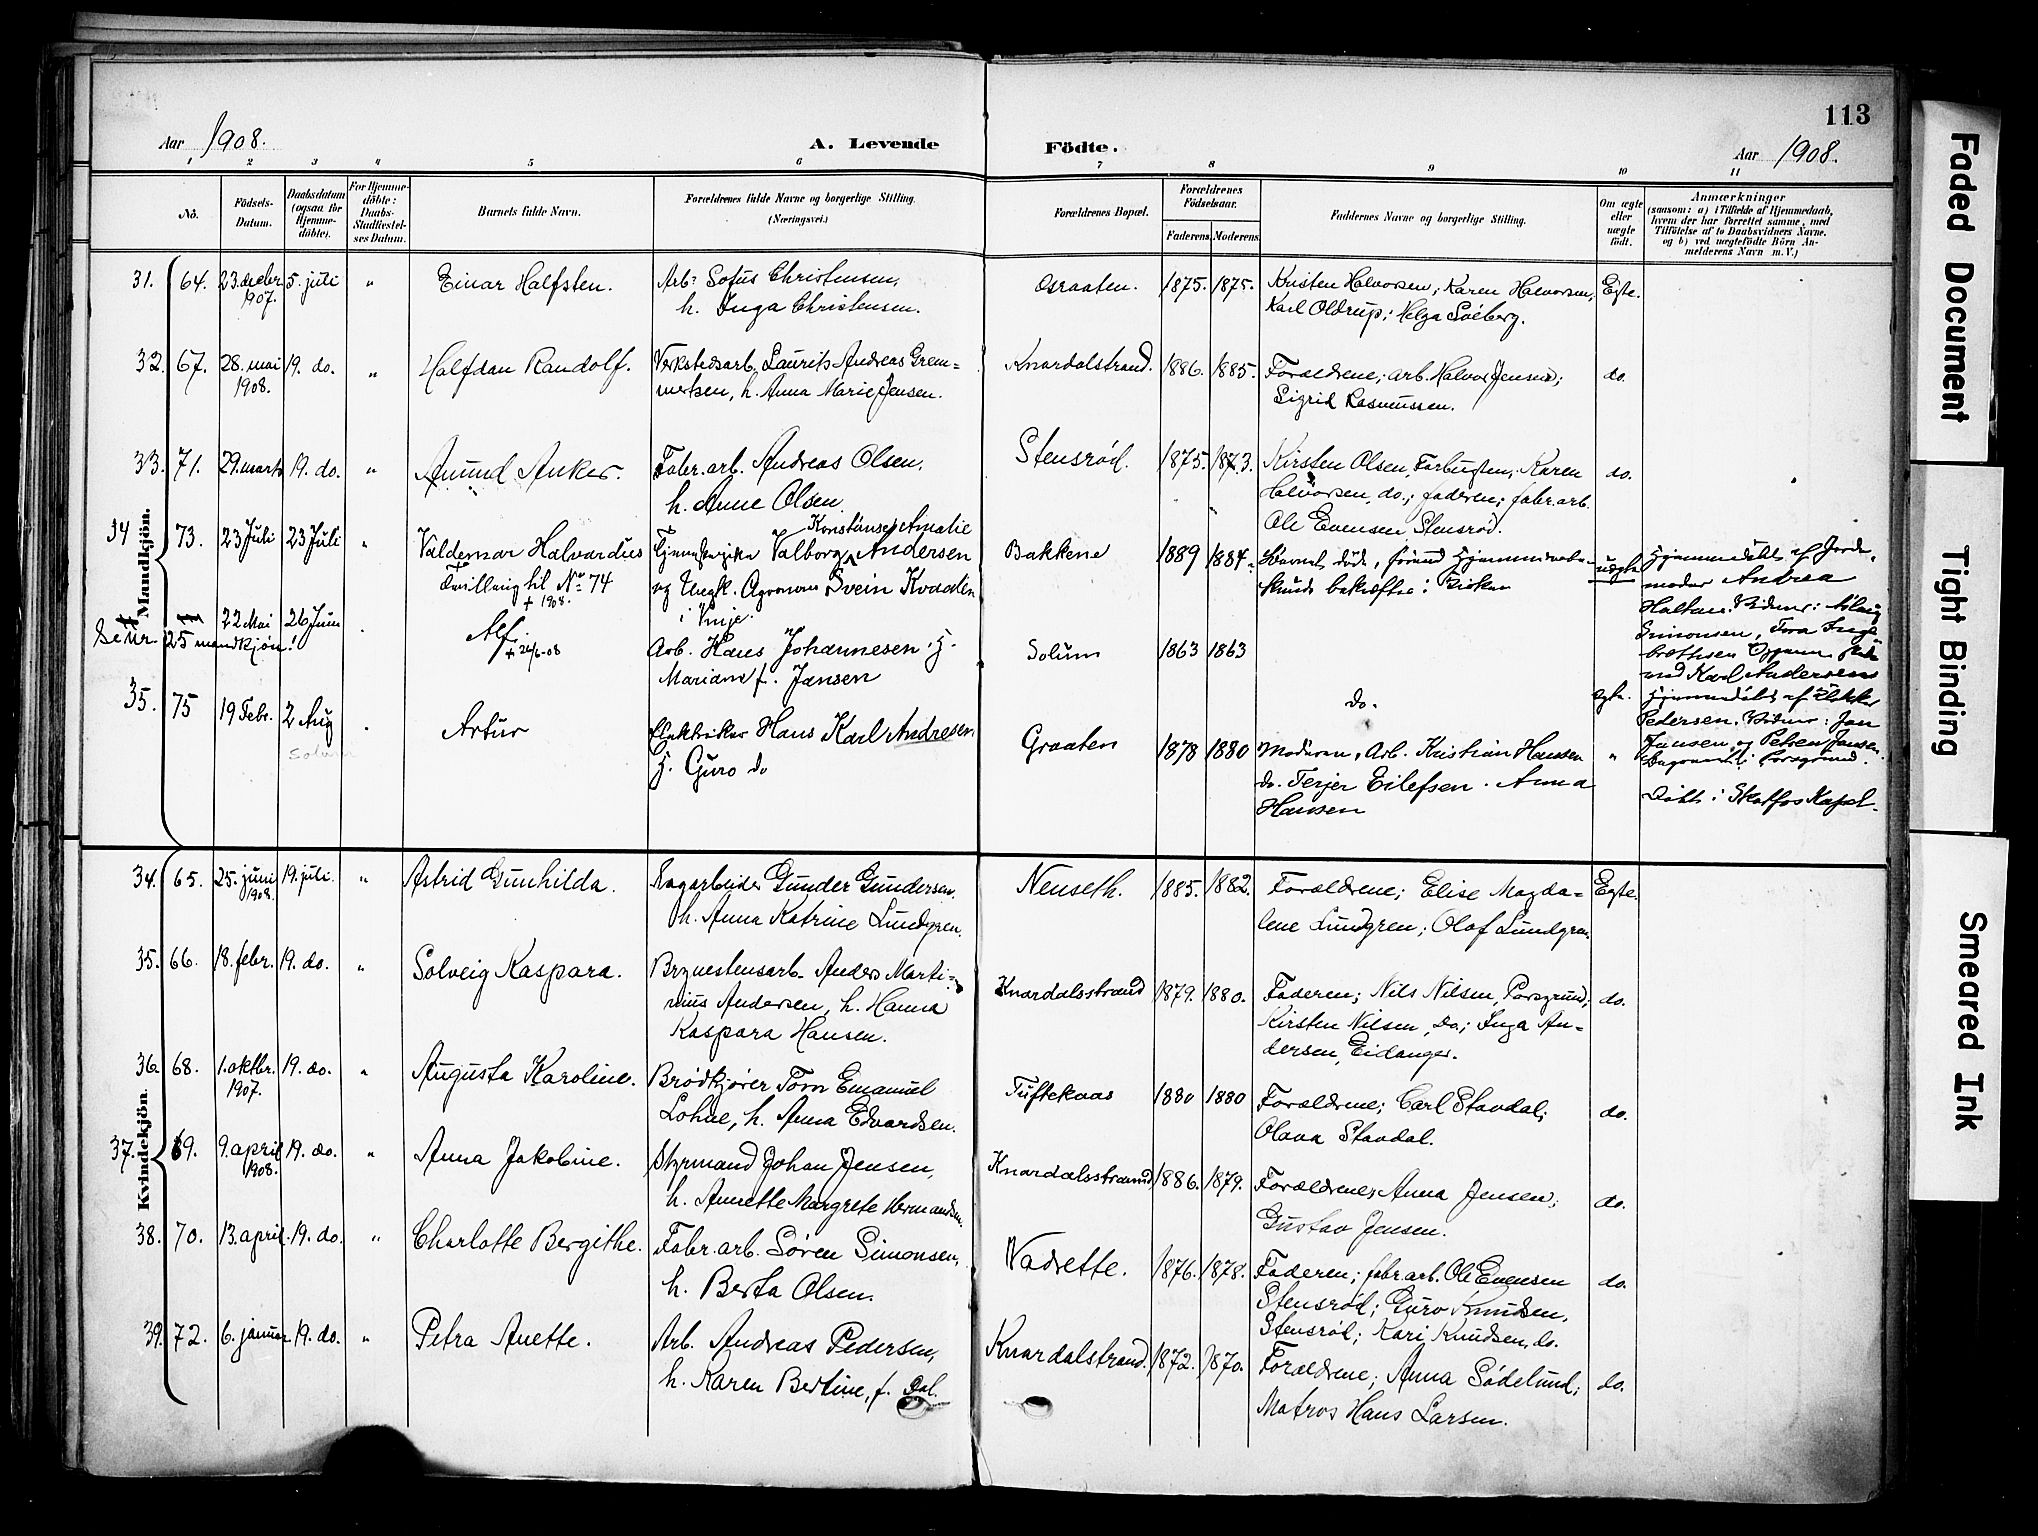 113
Aar 1908.
A. Levende
Födte.
Aar 1908.
1 2 3 4 5 6 7 8 9 10 11
No.
Födsels-
Datum.
Daabsdatum
(ogsaa for
Hjemme-
döbte).
For Hjemme-
döbte:
Daabs-
Stadfæstel-
ses Datum.
Barnets fulde Navn.
Forældrenes fulde Navne og borgerlige Stilling.
(Næringsvei.)
Forældrenes Bopæl.
Forældrenes
Födselsaar.
Faderens. Moderens.
Faddernes Navne og borgerlige Stilling.
Om ægte
eller
uægte
födt.
Anmærkninger
(saasom: a) i Tilfælde af Hjemmedaab,
hvem der har forrettet samme, med
Tilföielse af to Daabsvidners Navne.
og b) ved uægtefödte Börn An-
melderens Navn m. V.)
Mandkjön.
31. 64. 23. decbr 1907. 5. juli " Einar Halfsten.
Arb. Sofus Christensen,
h. Inga Christensen.
Osraaten. 1875. 1875.
Kristen Halvorsen; Karen Halvorsen;
Karl Oldrup; Helga Solberg.
Egte.
32. 67. 28. mai 1908. 19. do. " Halfdan Randolf.
Verkstedsarb. Laurits Andreas Grem=
mertsen, h. Anna Marie Jensen.
Knardalstrand. 1886. 1885.
Forældrene; arb. Halvor Jensen;
Sigrid Rasmussen.
do.
33. 71. 29. marts 19. do. " Amund Anker.
Fabr. arb. Andreas Olsen,
h. Anne Olsen.
Stensrød. 1875. 1873.
Kirsten Olsen, Karen
Halvorsen, do.; faderen; fabr. arb.
Ole Evensen Stensrød.
do.
34 73. 23 Juli 23 Juli " Valdemar Halvardus
Tvilling til No 74
+ 1908.
Konstanse Amalie
Valborg Andersen
og Ungk. Agronom Svein Kvaalen
i Vinje.
Bakkene 1889 1884
Barnet død,
uægte
Hjemmedøbt af Jorde-
moder Andrea
22 Mai 26 Juni
Se nr. 25 mandkjøn!
Alf
+ 26/6-08
Arb. Hans Johannesen. H.
Mariane f. Jansen
Solum 1863 1863
do.
egte.
Hjemmedøbt af
Pedersen. Vidner: Jan
Jansen og Petren Jansen
35. 75 19 Febr. 2 Aug Artur
Solum
Elektriker Hans Karl Andresen.
H. Guro do
Graaten 1878 1880
Moderen, Arb. Kristian Hansen
do. Terjer Eilefsen. Anna
Hansen
"
Døbt i Skotfos Kapel.
Kvindekjön.
34. 65. 25. juni 1908. 19. juli. " Astrid Gunhilda.
Gunder Gundersen,
h. Anna Katrine Lundgren.
Nenseth. 1885. 1882.
Forældrene; Elise Magda=
lene Lundgren; Olaf Lundgren.
Egte.
35. 66. 18. febr. 19. do. " Solveig Kaspara.
Brynestensarb. Anders Marti=
nius Andersen, h. Hanna
Kaspara Hansen.
Knardalsstrand 1879. 1880.
Faderen; Nils Nilsen, Porsgrund;
Kirsten Nilsen, do; Inga An=
dersen, Eidanger.
do.
36. 68. 1. oktbr. 1907. 19. do. " Augusta Karoline.
Brødkjører Tom Emanuel
Lohne, h. Anna Edvardsen.
Tuftekaas 1880 1880
Forældrene; Carl Stavdal;
Olava Stavdal.
do.
37. 69. 9. april 1908. 19. do. " Anna Jakobine.
Styrmand Johan Jensen,
h. Annette Margrete Hermandsen.
Knardalsstrand 1886. 1879.
Forældrene; Anna Jensen;
Gustav Jensen.
do.
38. 70. 13. april. 19. do. " Charlotte Bergithe.
Fabr. arb. Søren Simonsen,
h. Berta Olsen.
Vadrette. 1876. 1878.
Faderen; fabr. arb. Ole Evensen
Stensrød; Guro Knudsen,
Stensrød; Kari Knudsen, do.
do.
39. 72. 6. januar 19. do. " Petra Anette.
Arb. Andreas Pedersen,
h. Karen Bertine, f. Dal.
Knardalstrand. 1872. 1870.
Forældrene; Anna Södelund;
Matros Hans Larsen.
do.
Faded Document
Tight Binding
Smeared Ink